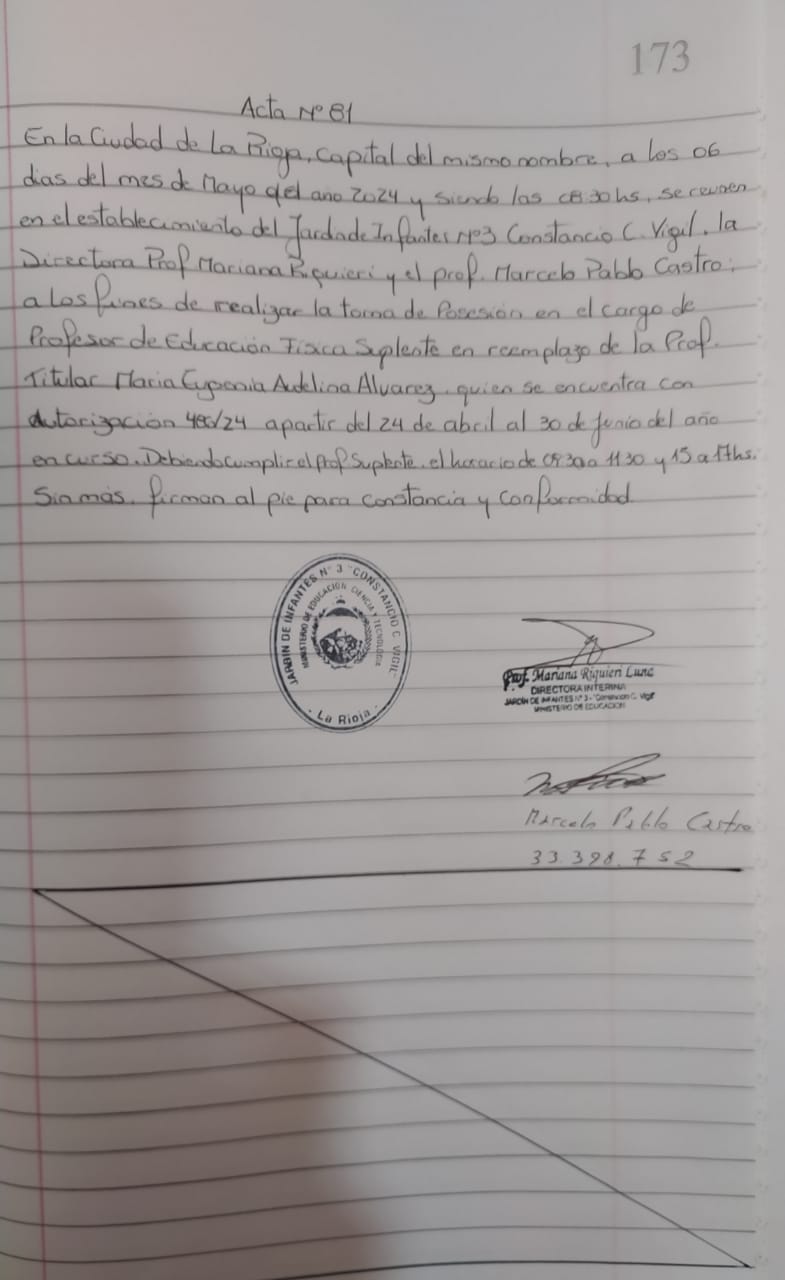 173
Acta Nº 81
En la Ciudad de La Rioja, Capital del mismo nombre, a los 06
dias del mes de Mayo del año 2024 y siendo las 08:30 hs, se reunen
en el establecimiento del Jardin de Infantes Nº3 Constancio C. Vigil, la
Directora Prof. Mariana Riquieri y el prof. Marcelo Pablo Castro;
a los fines de realizar la toma de Posesión en el cargo de
Profesor de Educación Fisica Suplente en reemplazo de la Prof.
Titular Maria Eugenia Audelina Alvarez, quien se encuentra con
Autorización /24 a partir del 24 de abril al 30 de Junio del año
en curso. Debiendo cumplir el Prof Suplente, el horario de 08:30 a 11:30 y 15 a 17hs.
Sin más, firman al pie para constancia y conformidad.
JARDIN DE INFANTES N° 3 "CONSTANCIO C. VIGIL"
MINISTERIO DE EDUCACIÓN CIENCIA Y TECNOLOGIA
La Rioja
Prof. Mariana Riquieri Luna
DIRECTORA INTERINA
JARDÍN DE INFANTES N° 3 - "Constancio C. Vigil"
MINISTERIO DE EDUCACION
Marcelo Pablo Castro
33.398.752